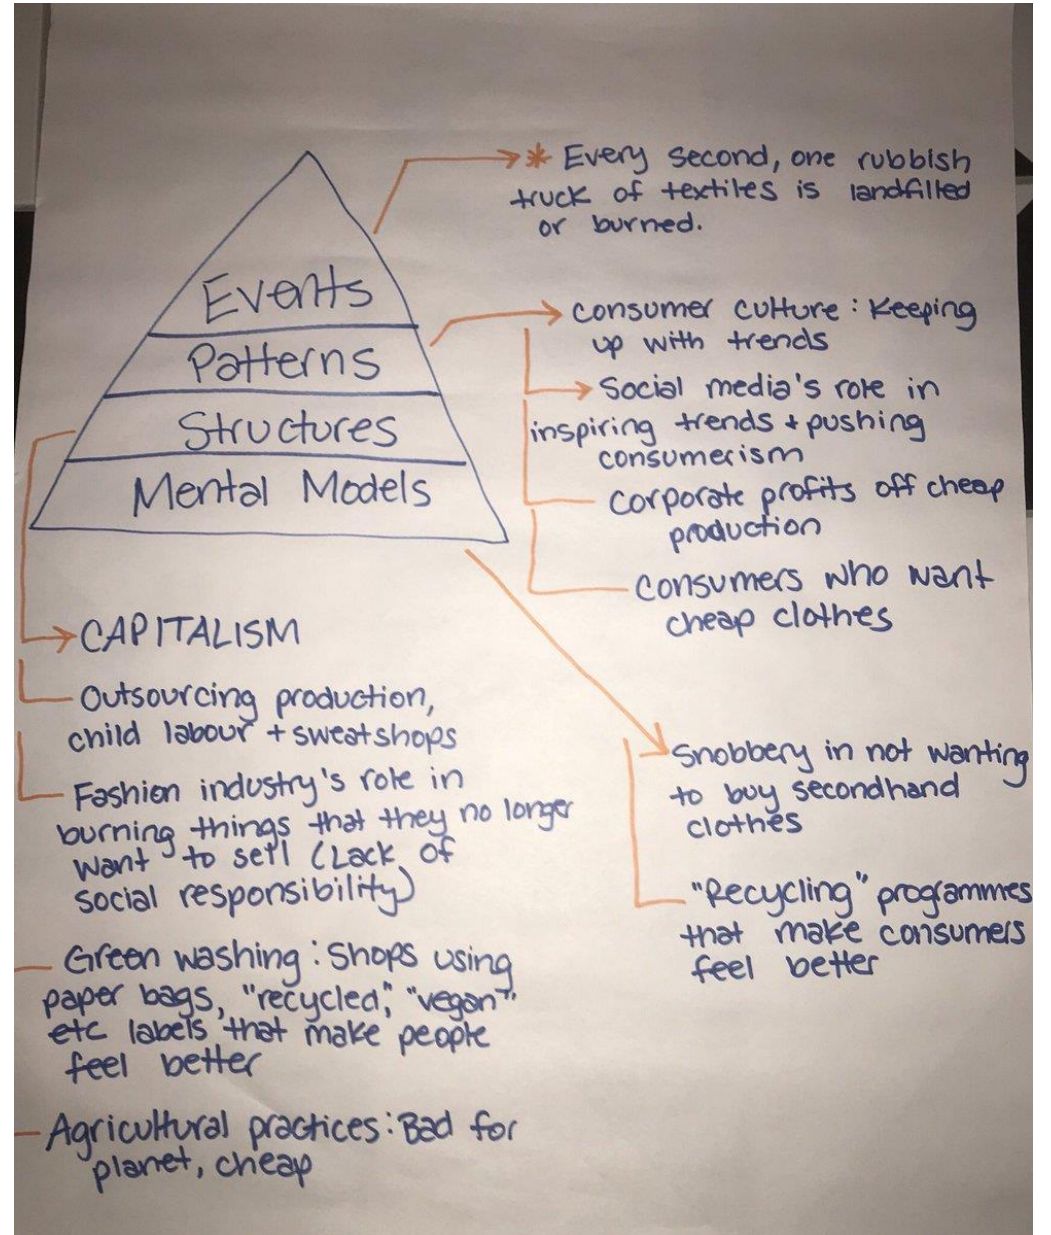 * Every second, one rubbish
truck of textiles is landfilled
or burned.
Events
Patterns
Structures
Mental Models
consumer culture : Keeping
up with trends
Social media's role in
inspiring trends + pushing
consumerism
Corporate profits off cheap
production
Consumers who want
cheap clothes
CAPITALISM
Outsourcing production,
child labour + sweatshops
Fashion industry's role in
burning things that they no longer
want to sell (Lack of
social responsibility)
Green washing : Shops using
paper bags, "recycled", "vegan"
etc labels that make people
feel better
Agricultural practices : Bad for
planet, cheap
Snobbery in not wanting
to buy secondhand
clothes
"Recycling" programmes
that make consumers
feel better